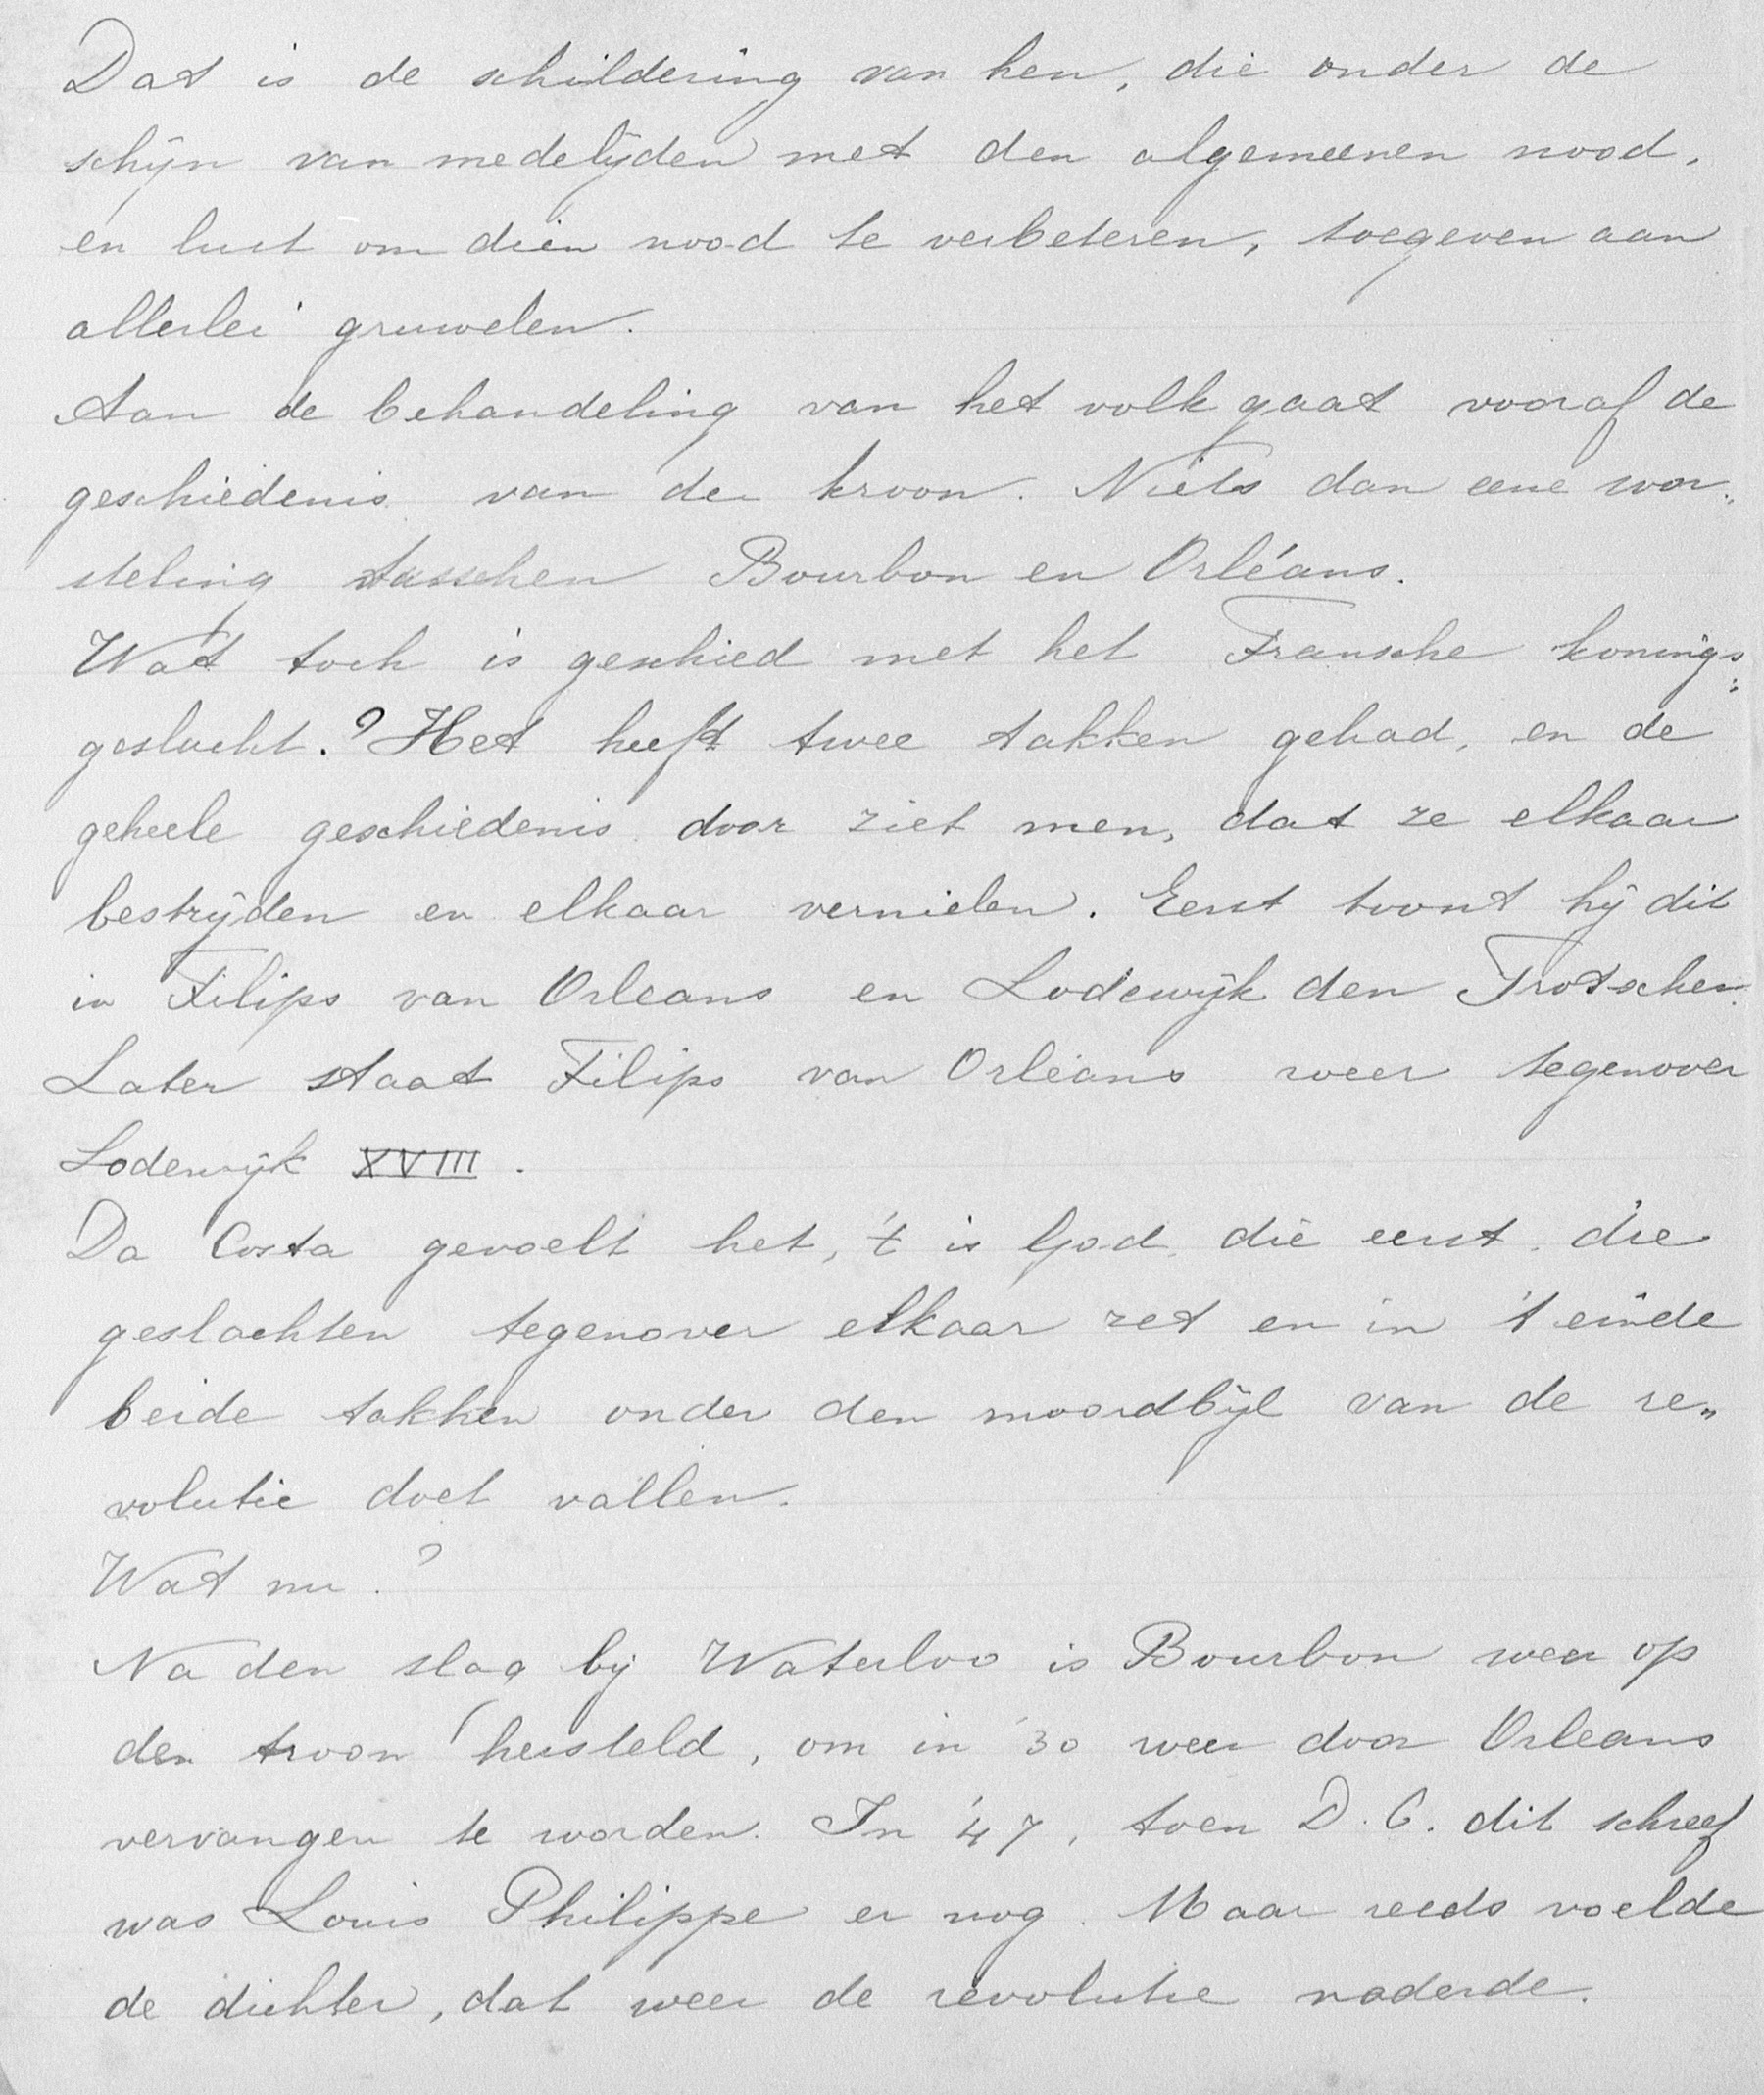 Dat is de schildering van hen, die onder de
schijn van medelijden met den algemeenen nood,
en lust om dien nood te verbeteren, toegeven aan
allerlei gruwelen.
Aan de behandeling van het volk gaat vooraf de
geschiedenis van de kroon. Niets dan eene wor„
steling tusschen Bourbon en Orléans.
Wat toch is geschied met het Fransche konings„
geslacht.? Het heeft twee takken gehad, en de
geheele geschiedenis door ziet men, dat ze elkaar
bestrijden en elkaar vernielen. Eerst toont hij dit
in Filips van Orleans en Lodewijk den Trotschen.
Later staat Filips van Orleans weer tegenover
Lodewijk XVIII.
Da Costa gevoelt het, 't is God die eerst die
geslachten tegenover elkaar zet en in 't einde
beide takken onder den moordbijl van de re„
volutie doet vallen.
Wat nu?
Na den slag bij Waterloo is Bourbon weer op
den troon hersteld, om in '30 weer door Orleans
vervangen te worden. In '47, toen D. C. dit schreef
was Louis Philippe er nog. Maar reeds voelde
de dichter, dat weer de revolutie naderde.